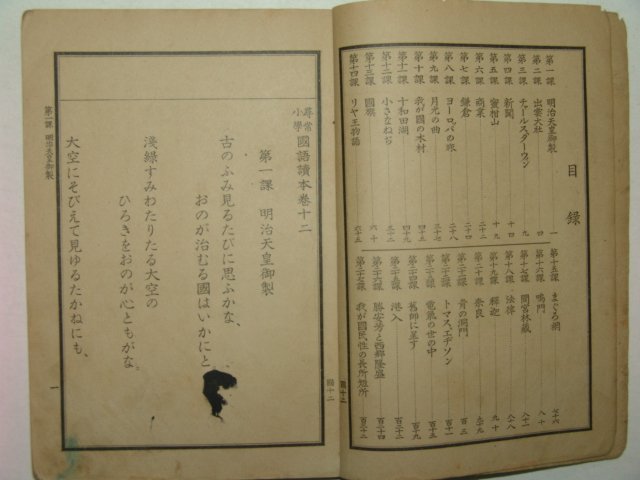 目錄
第一課 明治天皇御製 一
第二課 出雲大社
第三課 チャールス、ダーウィン 九
第四課 新聞 十四
第五課 蜜柑山 十九
第六課 商業
第七課 鎌倉 二十四
第八課 ヨーロッパの旅 二十八
第九課 月光の曲 三十七
第十課 我が國の木材 四十四
第十一課 十和田湖 四十九
第十二課 小さなねぢ
第十三課 國旗 六十
第十四課 リヤ王物語 六十五
第十五課 まぐろ網 七十六
第十六課 鳴門 八十
第十七課 間宮林藏 八十一
第十八課 法律 八十八
第十九課 釋迦 九十
第二十課 奈良 九十九
第二十一課 青の洞門 百三
第二十二課 トマス、エヂソン 百十一
第二十三課 電氣の世の中 百十五
第二十四課 舊師に呈す 百十九
第二十五課 港入 百二十二
第二十六課 勝安芳と西郷隆盛 百二十四
第二十七課 我が國民性の長所短所 百三十二
國十二
國十二
尋常小學 國語讀本卷十二
第一課 明治天皇御製
古のふみ見るたびに思ふかな、
おのが治むる國はいかにと
淺緑すみわたりたる大空の
ひろきをおのが心ともがな。
大空にそびえて見ゆるたかねにも、
第一課 明治天皇御製
一